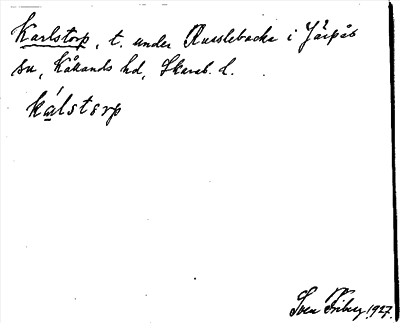 Karlstorp, t. under Russlebacka i Järpås
sn, Kåkands hd, Skarab. l.
kálstorp
Sven Friberg 1927.